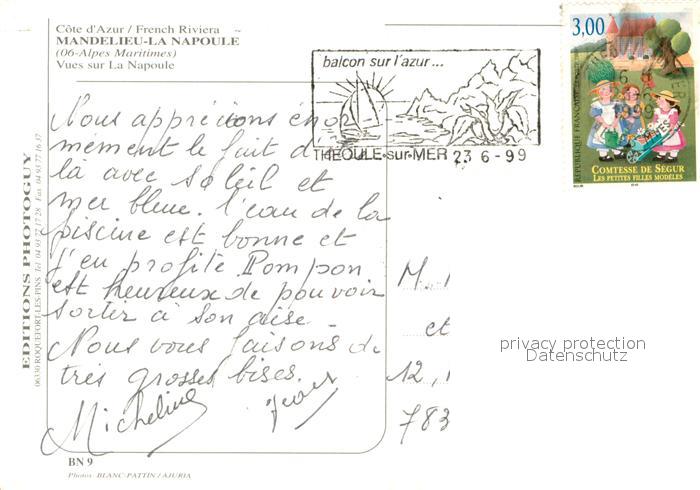 Côte d'Azur / French Riviera
MANDELIEU-LA NAPOULE
(06-Alpes Maritimes)
Vues sur La Napoule
balcon sur l'azur...
THEOULE-sur-MER 23 6-99
3,00
RÉPUBLIQUE FRANÇAISE
COMTESSE DE SÉGUR
LES PETITES FILLES MODÈLES
Nous apprécions énor
mément le fait d
là avec soleil et
mer bleue. l'eau de la
piscine est bonne et
j'en profite Pompon
est heureux de pouvoir
sortir à son aise
Nous vous faisons de
très grosses bises.
Micheline
M.
et
12,
783
privacy protection
Datenschutz
EDITIONS PHOTOGUY
06330 ROQUEFORT-LES-PINS Tel 04 93 77 17 28 Fax 04 93 77 16 37
BN 9
Photos BLANC-PATTIN / AJURIA